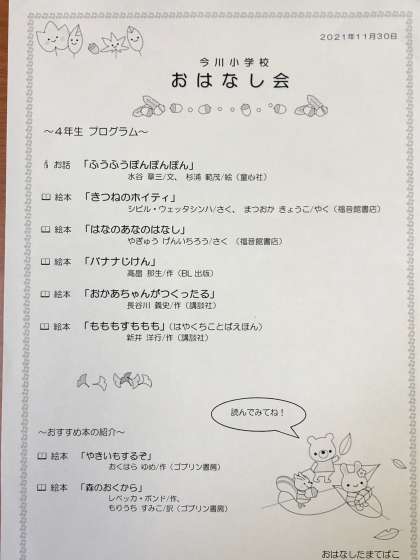 2021年11月30日
今川小学校
おはなし会
～4年生 プログラム～
お話 「ふうふうぽんぽんぽん」
水谷 章三/文、 杉浦 範茂/絵（童心社）
絵本 「きつねのホイティ」
シビル・ウェッタシンハ/さく、 まつおか きょうこ/やく（福音館書店）
絵本 「はなのあなのはなし」
やぎゅう げんいちろう/さく （福音館書店）
絵本 「バナナじけん」
高畠 那生/作（BL出版）
絵本 「おかあちゃんがつくったる」
長谷川 義史/作（講談社）
絵本 「ももももすももも」（はやくちことばえほん）
新井 洋行/作（講談社）
読んでみてね！
～おすすめ本の紹介～
絵本 「やきいもするぞ」
おくはら ゆめ/作（ゴブリン書房）
絵本 「森のおくから」
レベッカ・ボンド/作、
もりうち すみこ/訳（ゴブリン書房）
おはなしたまてばこ